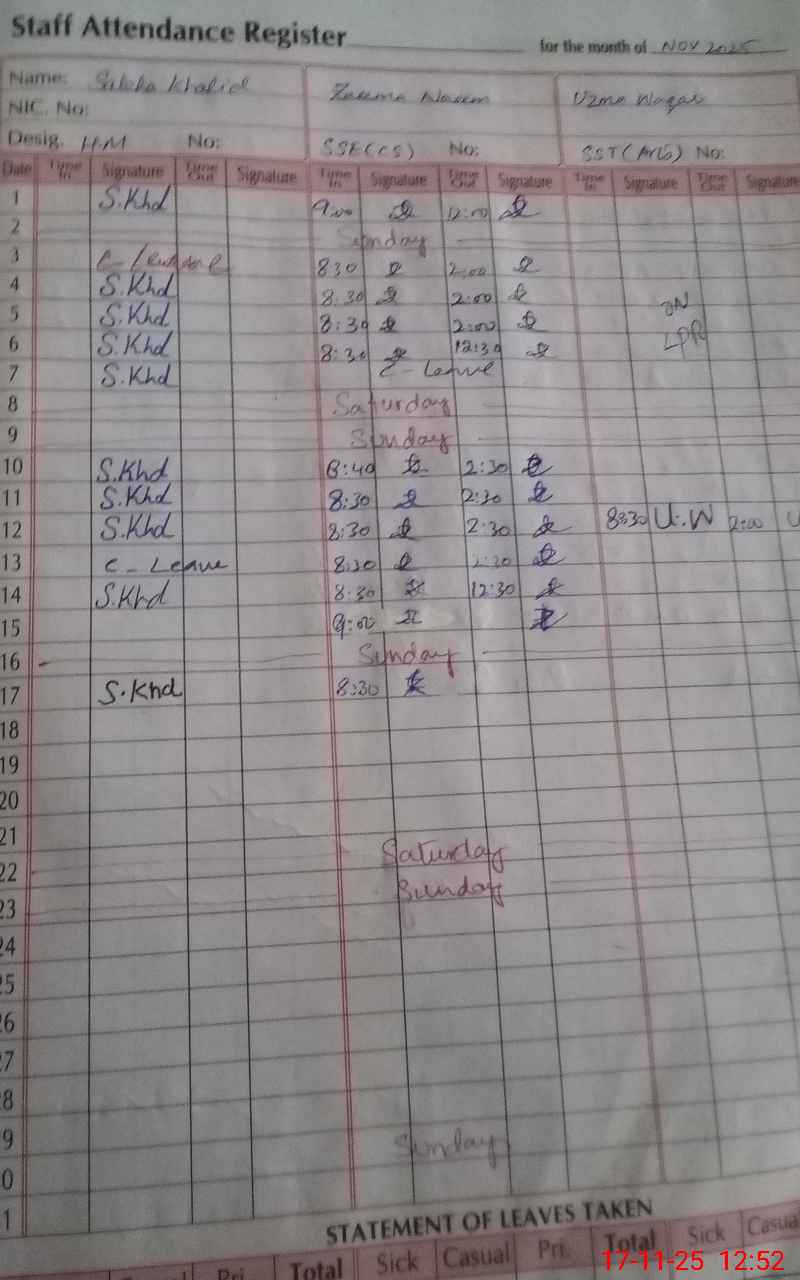 Staff Attendance Register for the month of NOV 2025
Name: Khalid
NIC. No:
Uzma Waqar
Desig. HM No: SSE(CS) No: SST(Arts) No:
Date Time In Signature Time Out Signature Time In Signature Time Out Signature Time In Signature Time Out Signature
1 S.Khd 9:00 12:00
2 Sunday
3 C- Leave 8:30 2:00
4 S.Khd 8:30 2:00
5 S.Khd 8:30 2:00 ON
6 S.Khd 8:30 12:30 LPR
7 S.Khd C- Leave
8 Saturday
9 Sunday
10 S.Khd 8:40 2:30
11 S.Khd 8:30 2:30
12 S.Khd 8:30 2:30 8:30 U.W 2:00 U
13 C- Leave 8:30 2:30
14 S.Khd 8:30 12:30
15 9:00
16 - Sunday
17 S.Khd 8:30
18
19
20
21
22 Saturday
23 Sunday
24
25
26
27
28
29 Sunday
30
31
STATEMENT OF LEAVES TAKEN
Casual Pri. Total Sick Casual Pri. Total Sick Casual
17-11-25 12:52